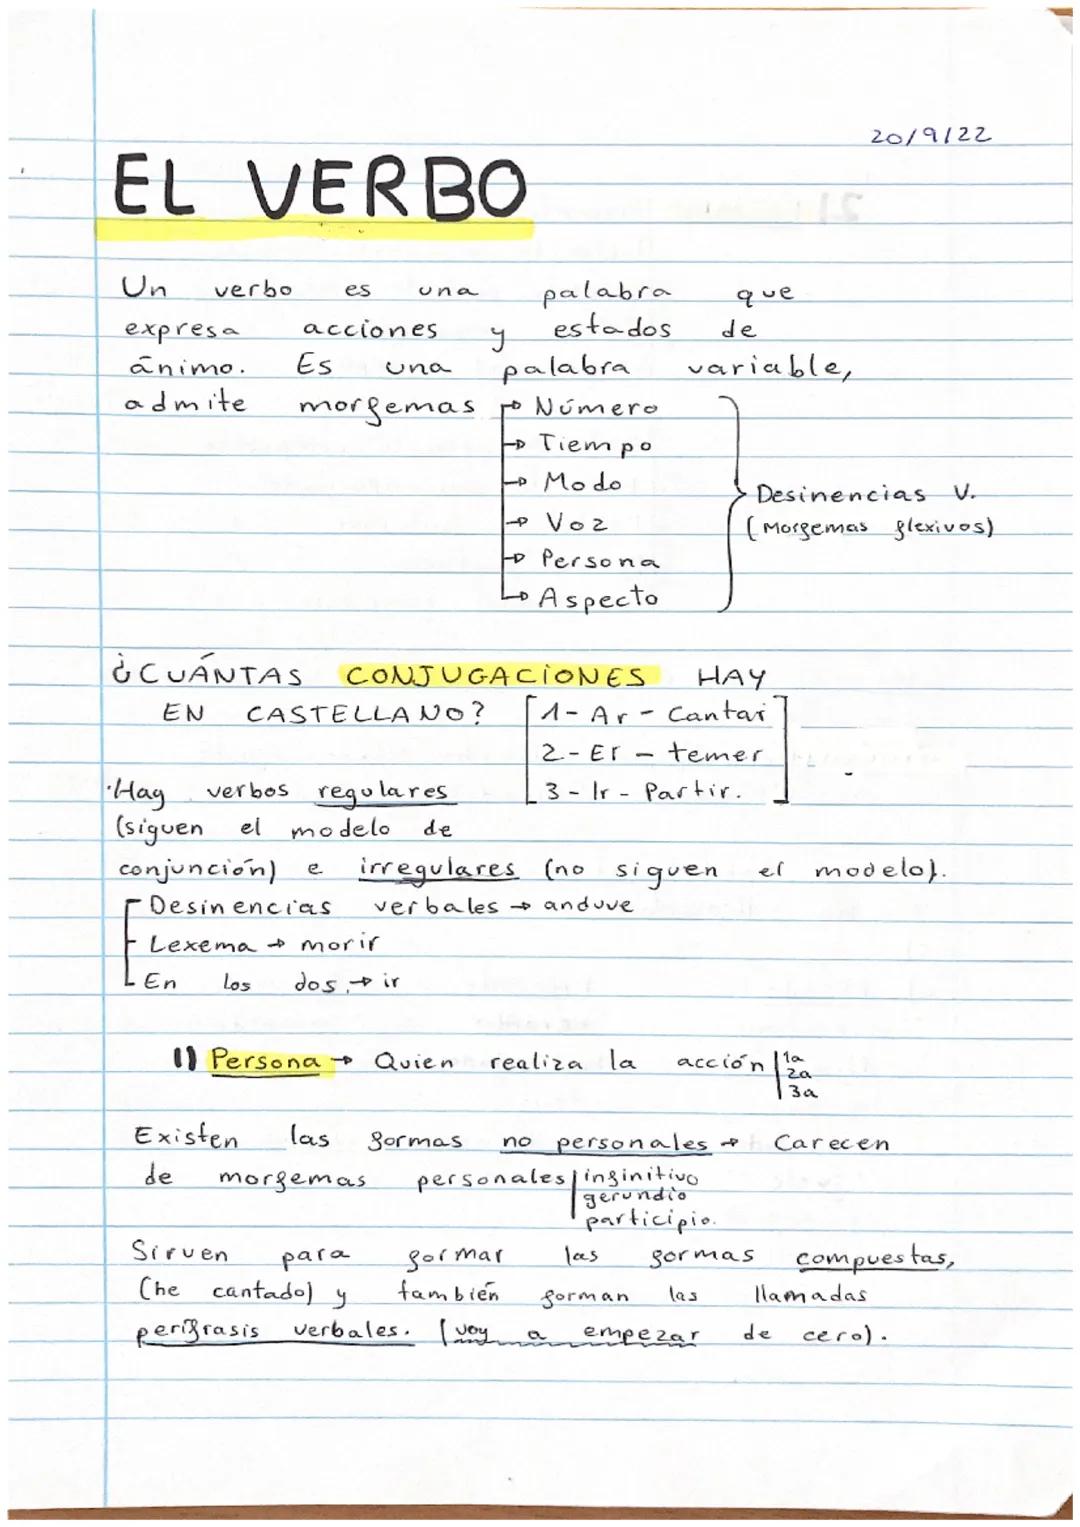 20/9/22
EL VERBO
Un verbo es una palabra que
expresa acciones y estados de
ánimo. Es una palabra variable,
admite morfemas → Número
→ Tiempo
→ Modo
→ Voz
→ Persona
→ Aspecto
Desinencias V.
(Morfemas flexivos)
¿CUÁNTAS CONJUGACIONES HAY
EN CASTELLANO?
1- Ar - Cantar
2- Er - temer
3- Ir - Partir.
·Hay verbos regulares
(siguen el modelo de
conjunción) e irregulares (no siguen el modelo).
Desinencias verbales → anduve
Lexema → morir
En los dos → ir
1) Persona → Quien realiza la acción
1a
2a
3a
Existen las formas no personales → Carecen
de morfemas personales
infinitivo
gerundio
participio.
Sirven para formar las formas compuestas,
(he cantado) y también forman las llamadas
perifrasis verbales. (voy a empezar de cero).